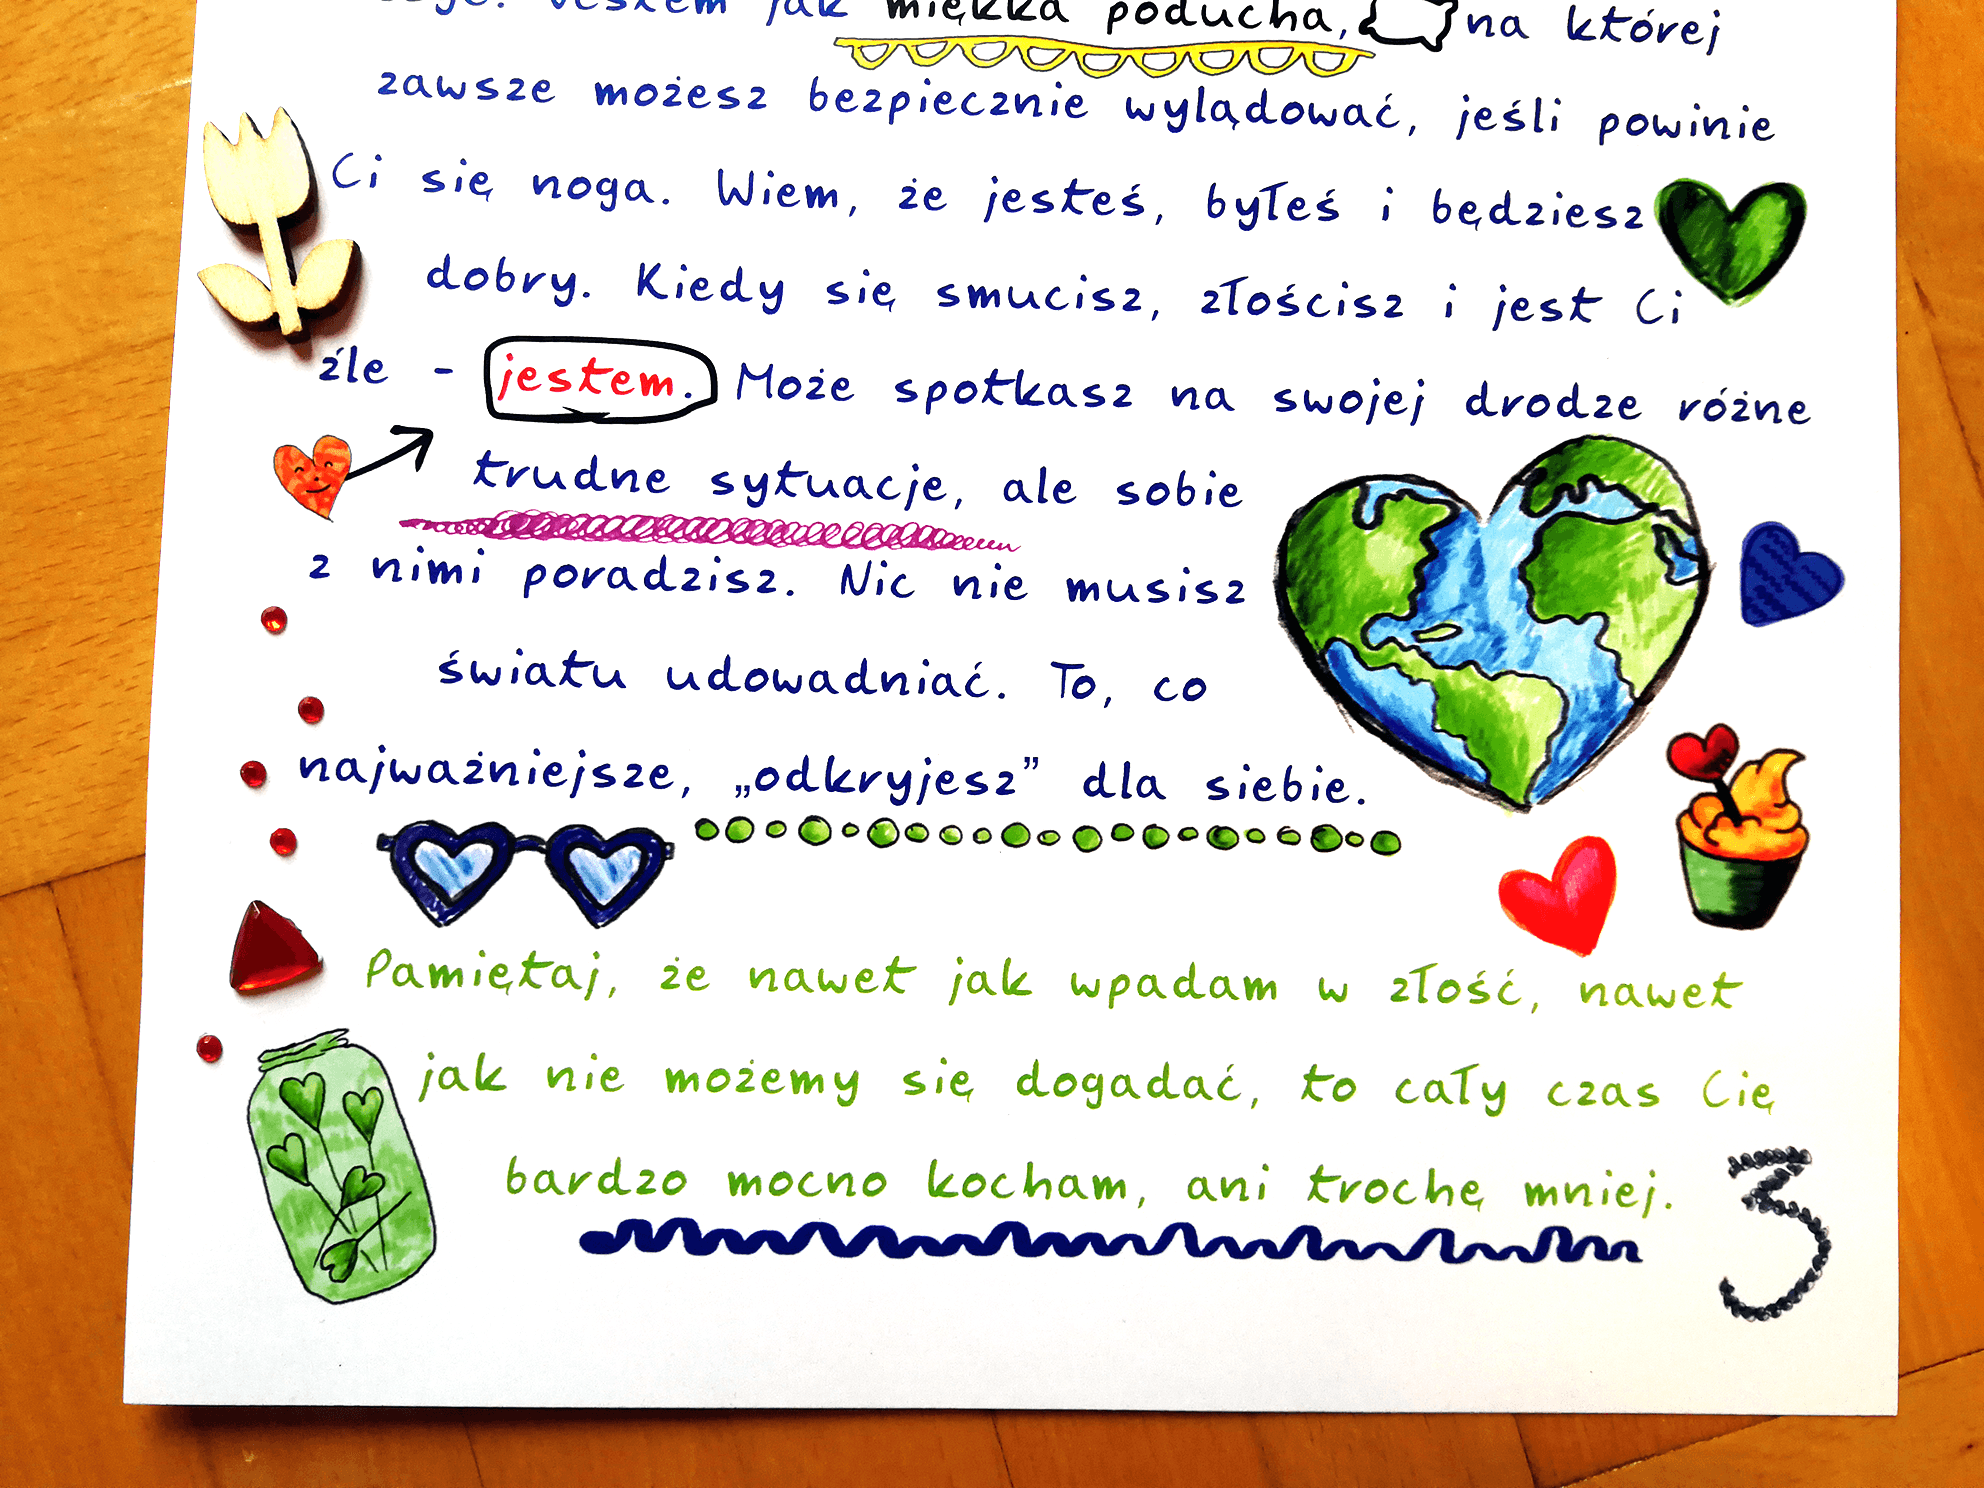 Jestem jak miękka poducha, na której
zawsze możesz bezpiecznie wylądować, jeśli powinie
Ci się noga. Wiem, że jesteś, byłeś i będziesz
dobry. Kiedy się smucisz, złościsz i jest Ci
źle - jestem. Może spotkasz na swojej drodze różne
trudne sytuacje, ale sobie
z nimi poradzisz. Nic nie musisz
światu udowadniać. To, co
najważniejsze, „odkryjesz” dla siebie.
Pamiętaj, że nawet jak wpadam w złość, nawet
jak nie możemy się dogadać, to cały czas Cię
bardzo mocno kocham, ani trochę mniej.
3